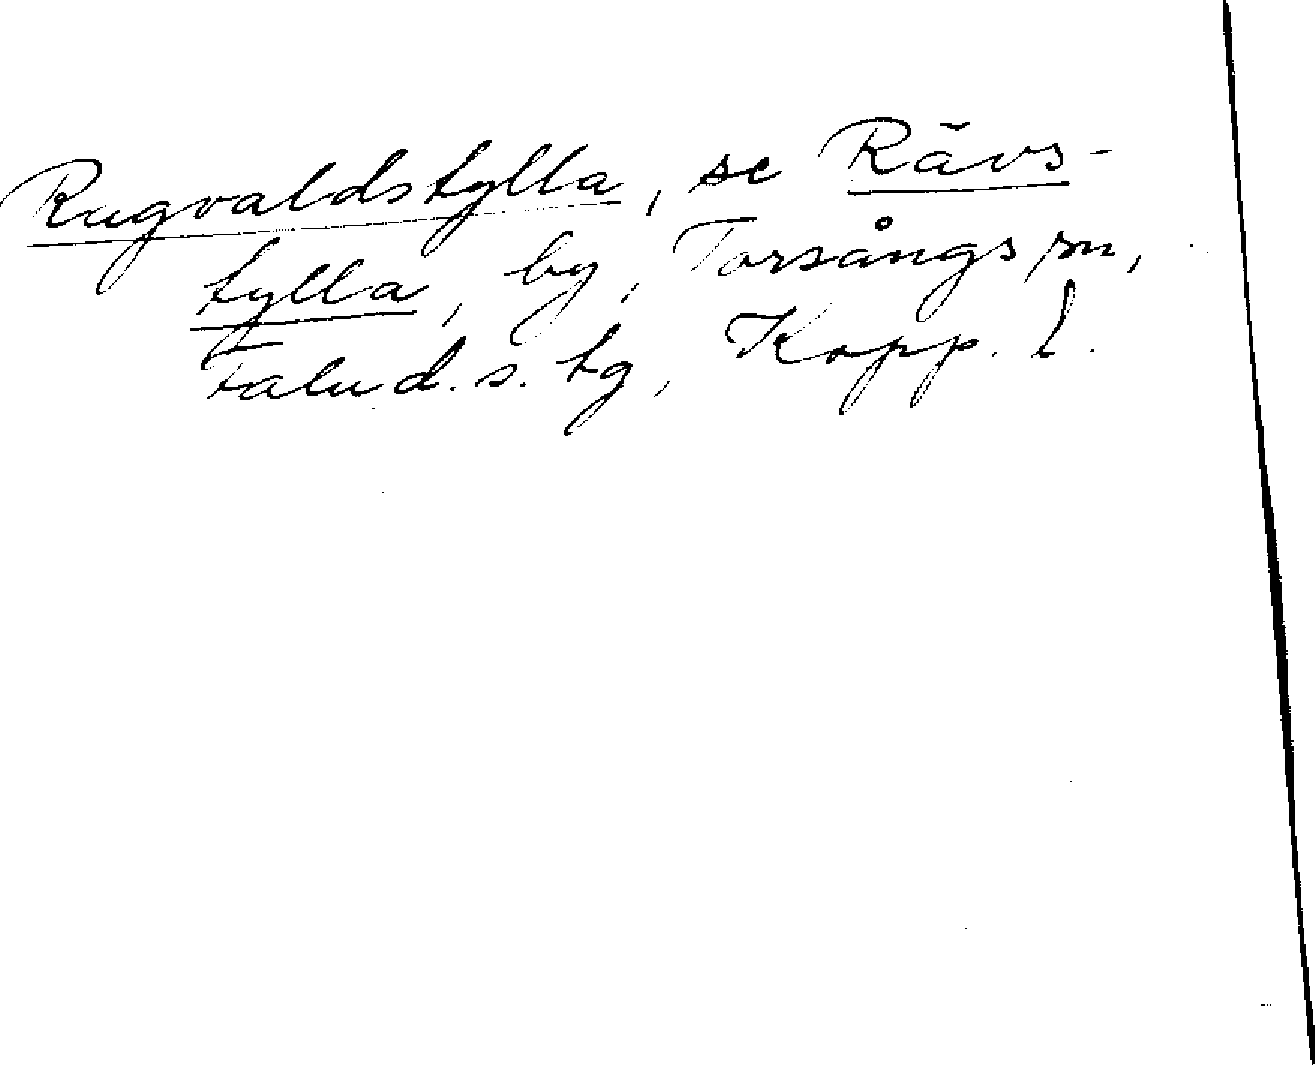 Ragvaldstylla, se Rävs-
tylla, by, Torsångs sn,
Falu d. s. tg, Kopp. l.